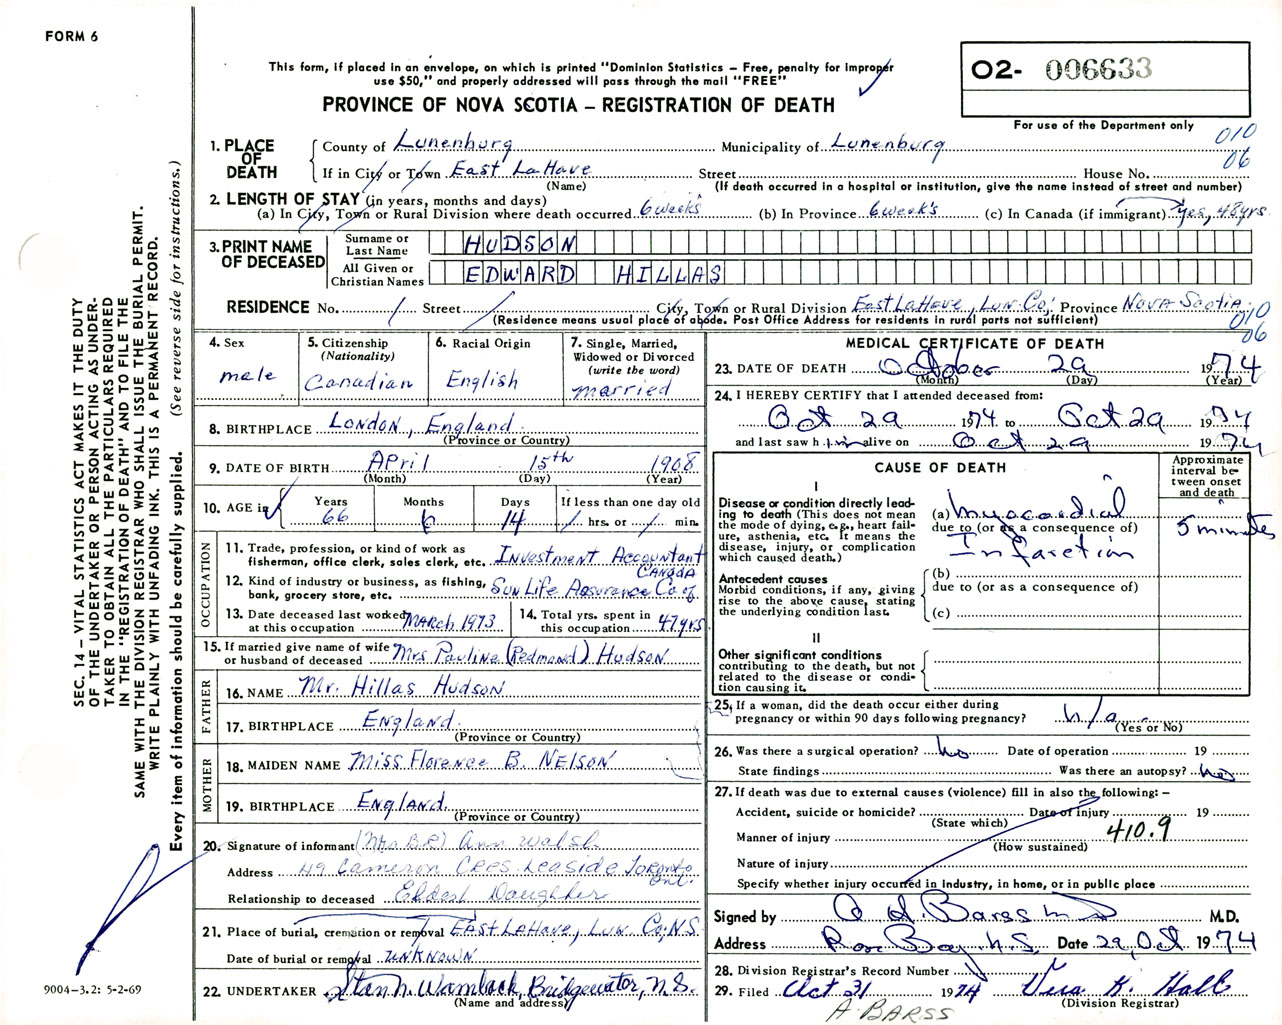 FORM 6
This form, if placed in an envelope, on which is printed "Dominion Statistics – Free, penalty for improper
use $50," and properly addressed will pass through the mail "FREE"
PROVINCE OF NOVA SCOTIA – REGISTRATION OF DEATH
O2- 006633
For use of the Department only
010
06
1. PLACE OF DEATH
County of Lunenburg Municipality of Lunenburg
If in City or Town East LaHave Street House No.
(Name) (If death occurred in a hospital or institution, give the name instead of street and number)
2. LENGTH OF STAY (in years, months and days)
(a) In City, Town or Rural Division where death occurred 6 weeks (b) In Province 6 weeks (c) In Canada (if immigrant) yes, 48 yrs.
3. PRINT NAME OF DECEASED
Surname or Last Name HUDSON
All Given or Christian Names EDWARD HILLAS
RESIDENCE No. / Street / City, Town or Rural Division East LaHave, Lun. Co; Province NOVA SCOTIA
(Residence means usual place of abode. Post Office Address for residents in rural parts not sufficient)
010
06
4. Sex male
5. Citizenship (Nationality) Canadian
6. Racial Origin English
7. Single, Married, Widowed or Divorced (write the word) married
8. BIRTHPLACE LONDON, England
(Province or Country)
9. DATE OF BIRTH April 15th 1908
(Month) (Day) (Year)
10. AGE in Years 66 Months 6 Days 14 If less than one day old / hrs. or / min.
OCCUPATION
11. Trade, profession, or kind of work as fisherman, office clerk, sales clerk, etc. Investment Accountant
12. Kind of industry or business, as fishing, bank, grocery store, etc. Sun Life Assurance Co of CANADA
13. Date deceased last worked at this occupation March 1973
14. Total yrs. spent in this occupation 47 yrs
15. If married give name of wife or husband of deceased Mrs Pauline (Redmond) Hudson
FATHER
16. NAME Mr. Hillas Hudson
17. BIRTHPLACE England
(Province or Country)
MOTHER
18. MAIDEN NAME Miss Florence B. NELSON
19. BIRTHPLACE England
(Province or Country)
20. Signature of informant (Mrs B.P.) Ann Walsh
Address 49 Cameron Cres Leaside Toronto Ont.
Relationship to deceased Eldest Daughter
21. Place of burial, cremation or removal East LaHave, Lun. Co; N.S.
Date of burial or removal UNKNOWN
22. UNDERTAKER Stan N. Wamback, Bridgewater, N.S.
(Name and address)
MEDICAL CERTIFICATE OF DEATH
23. DATE OF DEATH October 29 1974
(Month) (Day) (Year)
24. I HEREBY CERTIFY that I attended deceased from:
Oct 29 1974 to Oct 29 1974
and last saw him alive on Oct 29 1974
CAUSE OF DEATH
Approximate interval between onset and death
I
Disease or condition directly leading to death (This does not mean the mode of dying, e.g., heart failure, asthenia, etc. It means the disease, injury, or complication which caused death.)
(a) Myocardial
due to (or as a consequence of)
Infarction
5 minutes
Antecedent causes
Morbid conditions, if any, giving rise to the above cause, stating the underlying condition last.
(b)
due to (or as a consequence of)
(c)
II
Other significant conditions
contributing to the death, but not related to the disease or condition causing it.
25. If a woman, did the death occur either during pregnancy or within 90 days following pregnancy? n/a
(Yes or No)
26. Was there a surgical operation? No Date of operation 19
State findings Was there an autopsy? No
27. If death was due to external causes (violence) fill in also the following: –
Accident, suicide or homicide? Date of injury 19
(State which)
Manner of injury 410.9
(How sustained)
Nature of injury
Specify whether injury occurred in Industry, in home, or in public place
Signed by Barss MD M.D.
Address Rose Bay N.S. Date 29 Oct 1974
28. Division Registrar's Record Number
29. Filed Oct 31 1974 Vera K. Hall
(Division Registrar)
A BARSS
SEC. 14 – VITAL STATISTICS ACT MAKES IT THE DUTY
OF THE UNDERTAKER OR PERSON ACTING AS UNDER-
TAKER TO OBTAIN ALL THE PARTICULARS REQUIRED
IN THE "REGISTRATION OF DEATH" AND TO FILE THE
SAME WITH THE DIVISION REGISTRAR WHO SHALL ISSUE THE BURIAL PERMIT.
WRITE PLAINLY WITH UNFADING INK. THIS IS A PERMANENT RECORD.
Every item of information should be carefully supplied. (See reverse side for instructions.)
9004–3.2: 5-2-69